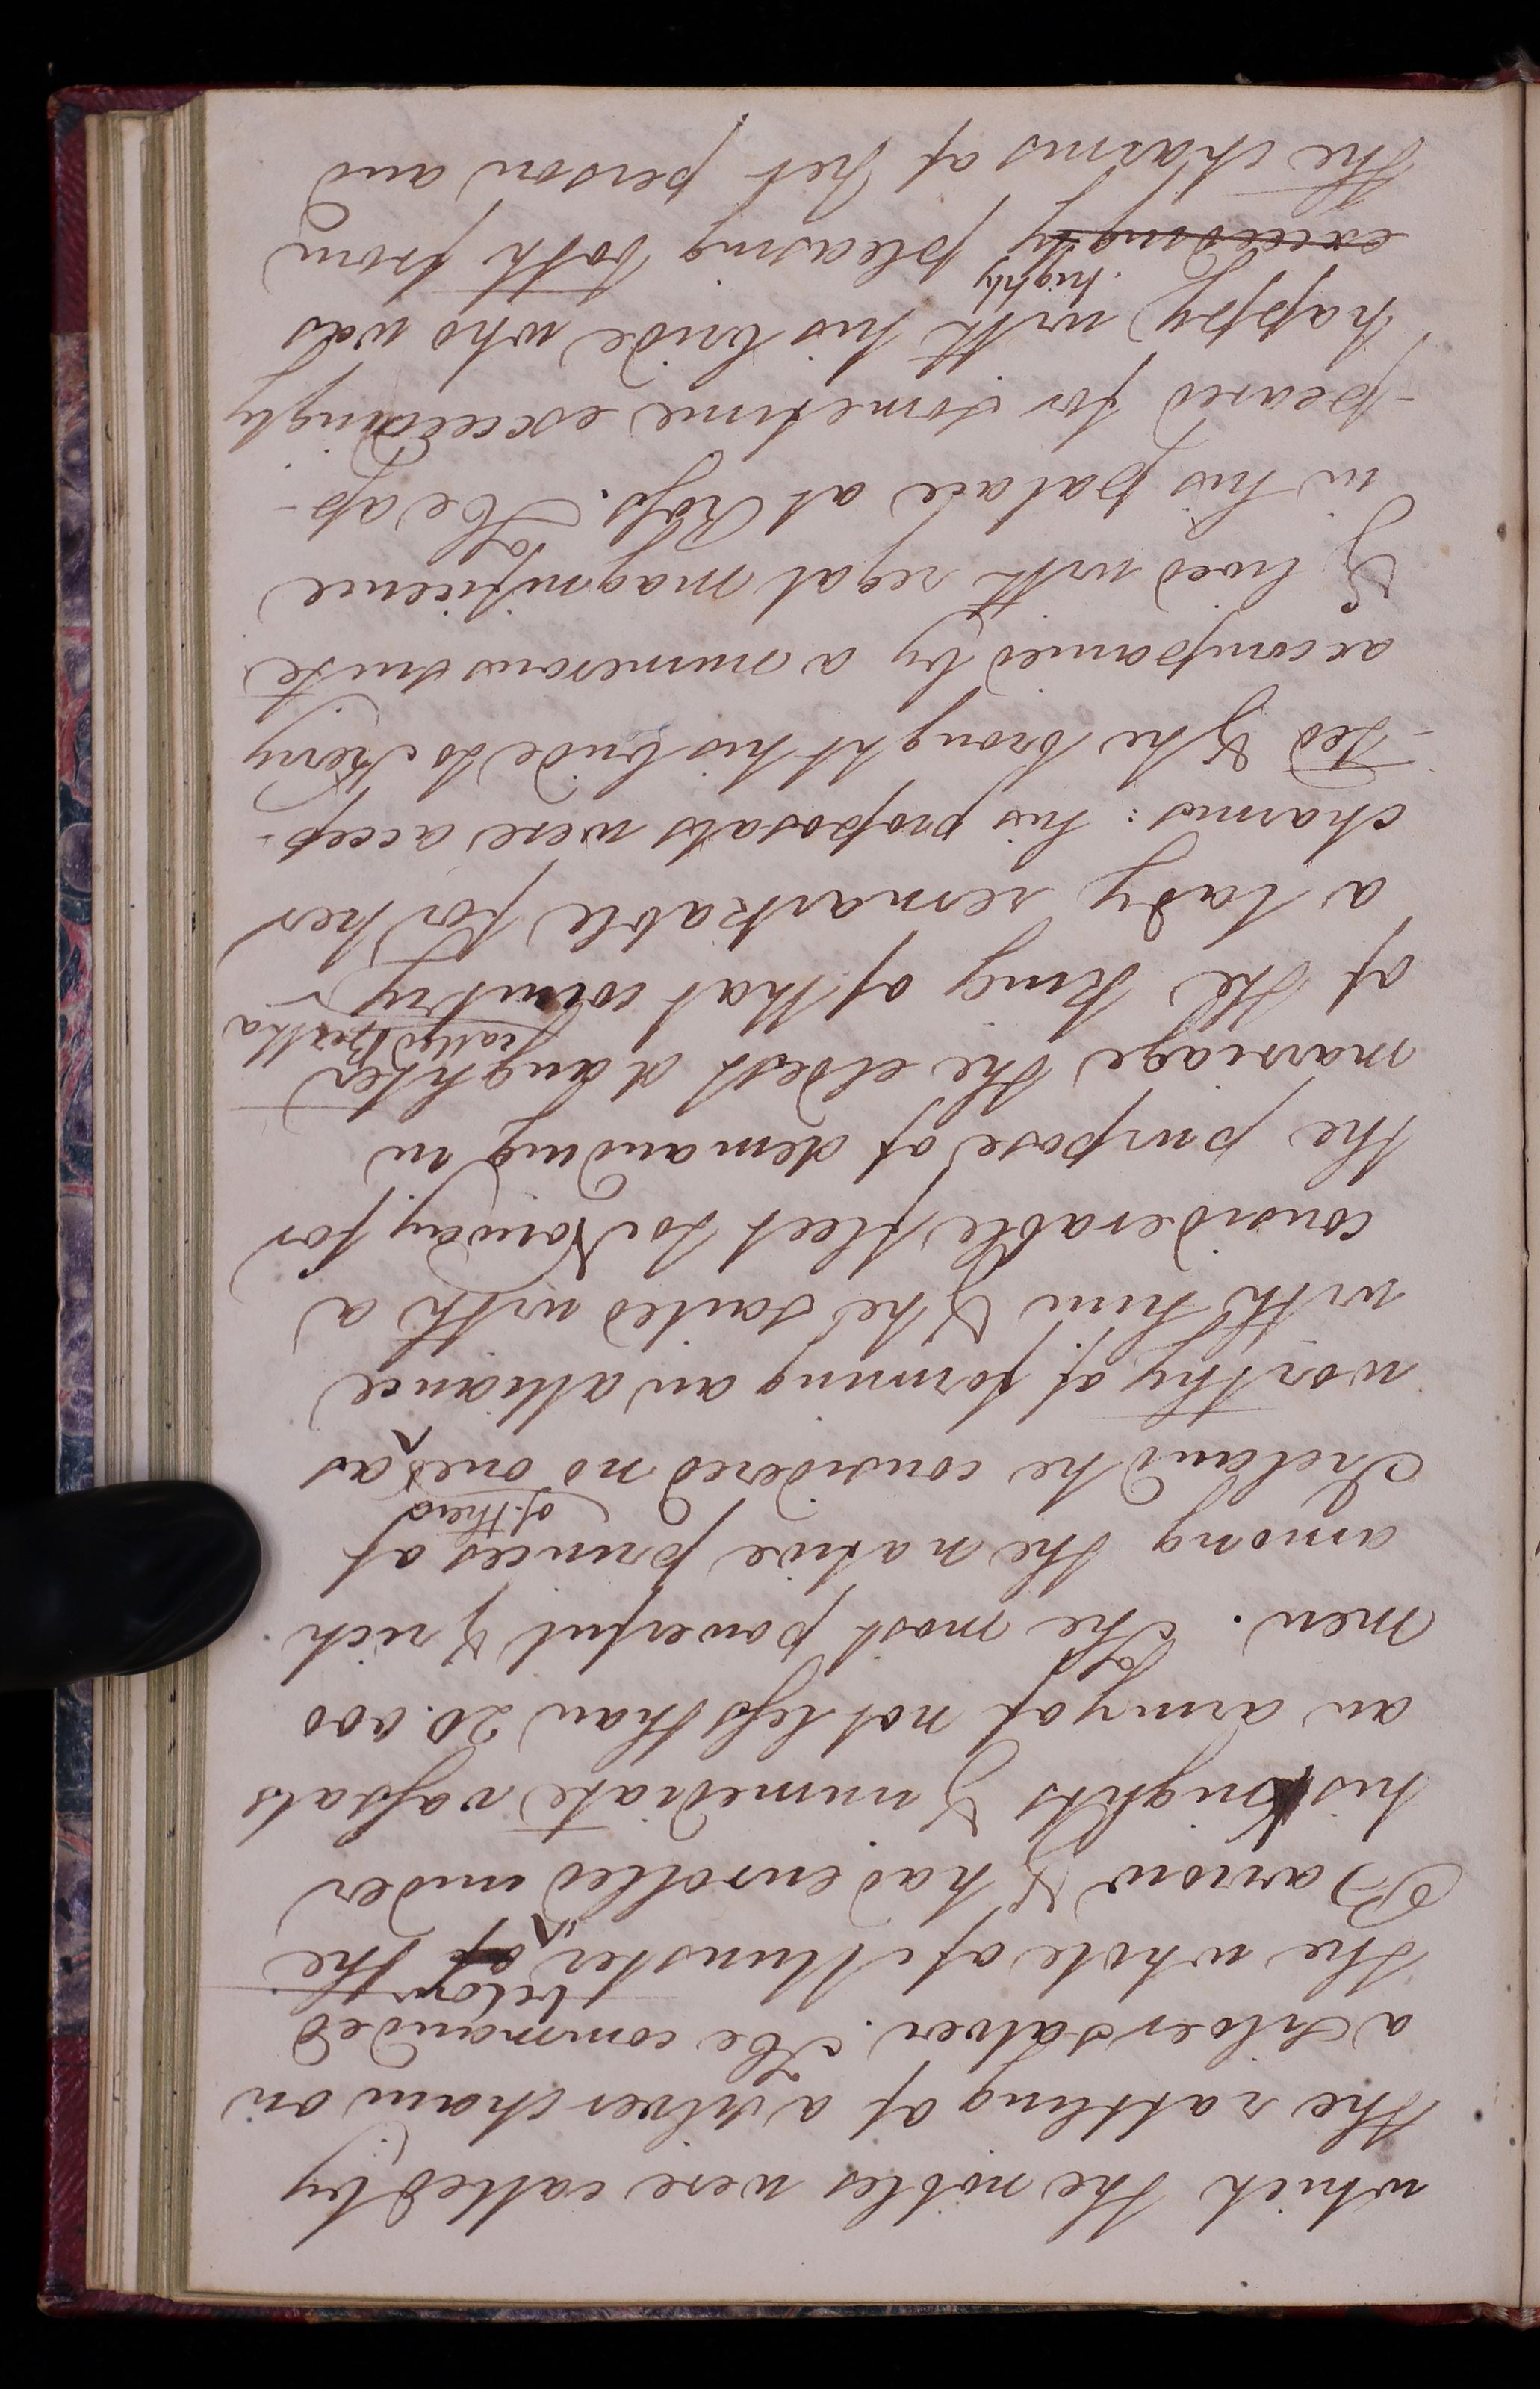 which the nobles were called by
the rattling of a silver chain on
a silver salver. He commanded
below the
the whole of Munster, of the
Barrow & had enrolled under
his knights & immediate vassals
an army of not less than 20.000
men. The most powerful & rich
among the native princes of
of them
Ireland he considered no one as
worthy of forming an alliance
with him & he sailed with a
considerable fleet to Norway for
the purpose of demanding in
marriage the eldest daughter
called Bertha
of the King of that country
a lady remarkable for her
charms: his proposals were accep-
-ted & he brought his bride to Kerry
accompanied by a numerous suite
& lived with regal magnificence
in his palace at Ross. He ap-
-peared for some time exceedingly
happy with his bride who was
highly
exceedingly pleasing both from
the charms of her person and